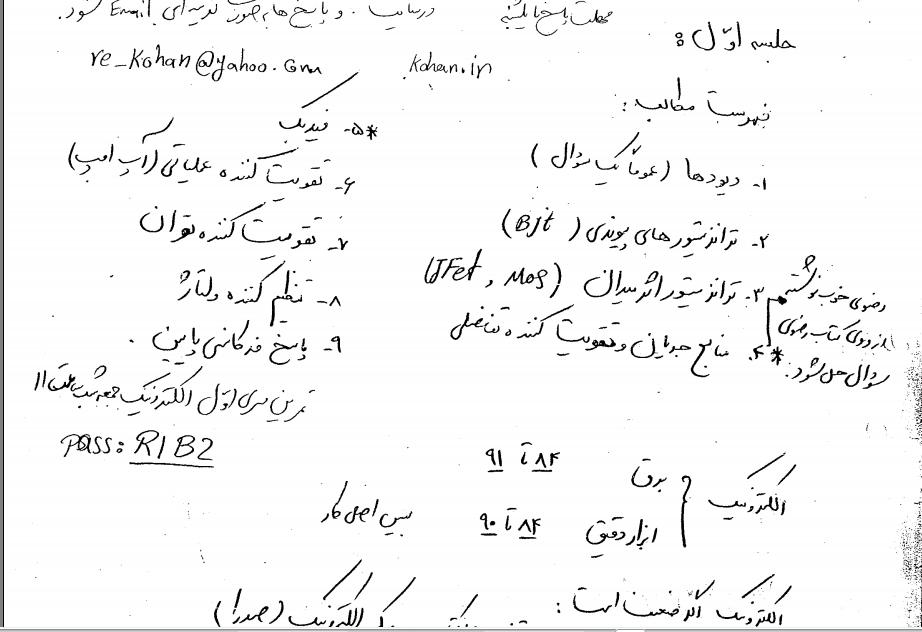 مهلت پاسخ تا یکشنبه در سایت . و پاسخ ها به صورت ای Email شود.
جلسه اوّل :
kohan.in re_kohan@yahoo.com
فهرست مطالب :
۱- دیودها (عموماً یک سؤال)
۲- ترانزیستورهای پیوندی (Bjt)
۳- ترانزیستور اثر میدان (JFet , MOS)
*۴. منابع جریان و تقویت کننده تفاضلی
رضوی خوب نوشته
از روی کتاب رضوی
سؤال حل شود.
*۵- فیدبک
۶- تقویت کننده عملیاتی (آپ امپ)
۷- تقویت کننده توان
۸- تنظیم کننده ولتاژ
۹- پاسخ فرکانسی پایین .
تمرین سری اوّل الکترونیک جمعه شب ساعت ۱۱
Pass: R1B2
الکترونیک
برق ۸۴ تا ۹۱
ابزار دقیق ۸۴ تا ۹۰ پس اصل کار
الکترونیک اگر ضعیف است :
الکترونیک (صدرا)